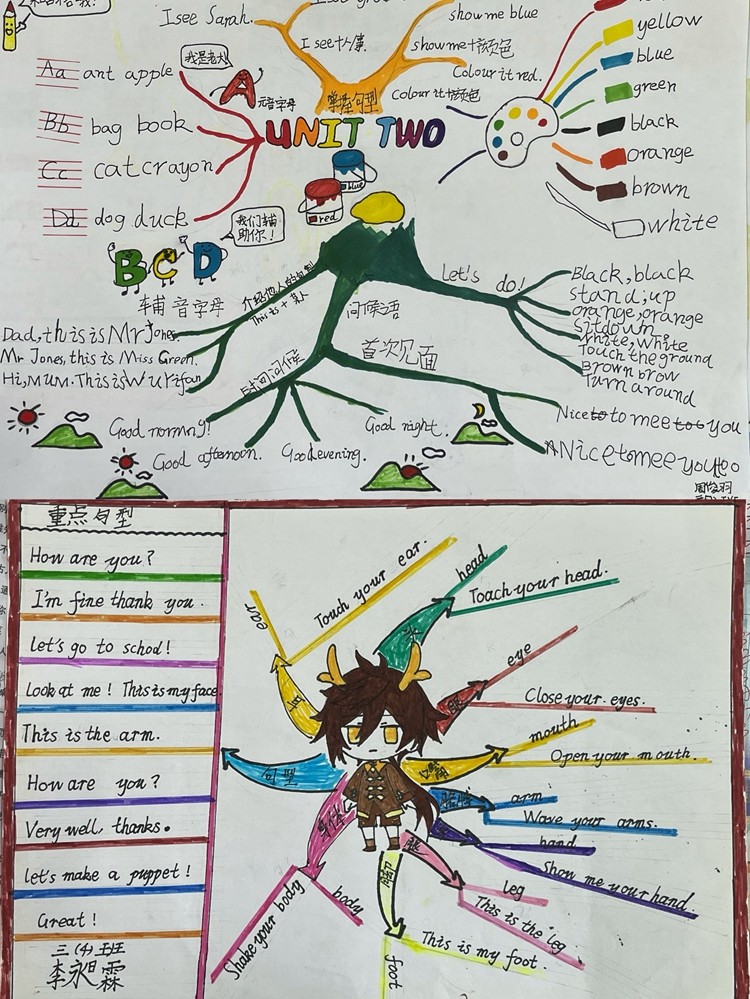 I see Sarah.
I see+人/事.
show me blue
show me+颜色
Colour it red.
Colour it+颜色
掌握句型
我是老大!
A
元音字母
UNIT TWO
Aa ant apple
Bb bag book
Cc cat crayon
Dd dog duck
yellow
blue
green
black
orange
brown
white
blue
red
我们辅
助你!
BCD
辅音字母
This is + 某人
问候语
首次见面
时间问候
Let's do!
Black, black
stand; up
orange, orange
Sitdown
White, White
Touch the ground
Brown brow
Turn around
Dad, this is Mr Jones.
Mr Jones, this is Miss Green.
Hi, MUM. This is Wu Yifan
Good afternoon.
Good evening.
Good night.
Nice to to mee too you
Nice to mee you too
重点句型
How are you?
I'm fine thank you.
Let's go to school!
Look at me! This is my face
This is the arm.
How are you?
Very well, thanks.
Let's make a puppet!
Great!
三(4)班
李昶霖
ear
Touch your ear.
head
Toach your head.
eye
Close your eyes.
mouth
Open your mouth.
arm
Wave your arms.
hand
Show me your hand.
leg
This is the leg
foot
This is my foot.
body
Shake your body
句型
身体
脚
腿